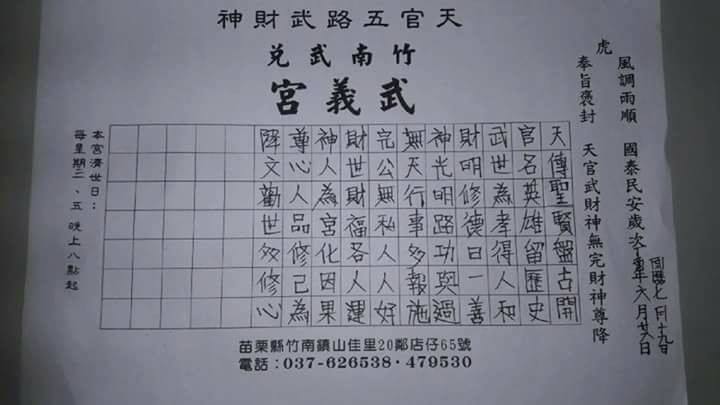 天官五路武財神
竹南武兌
武義宮
虎
風調雨順 國泰民安歲次丁酉年六月廿六日
国曆七月十九日
奉旨褒封 天官武財神無完財神尊降
天傳聖賢盤古開
官名英雄留歷史
武世為孝得人和
財明修德日一善
神光明路功與過
無天行事多報施
完公無私人人好
財世財福各人運
神人為宮化因果
尊心人品修己為
降文勸世修心
本宮濟世日：
每星期二、五 晚上八點起
苗栗縣竹南鎮山佳里20鄰店仔65號
電話：037-626538・479530